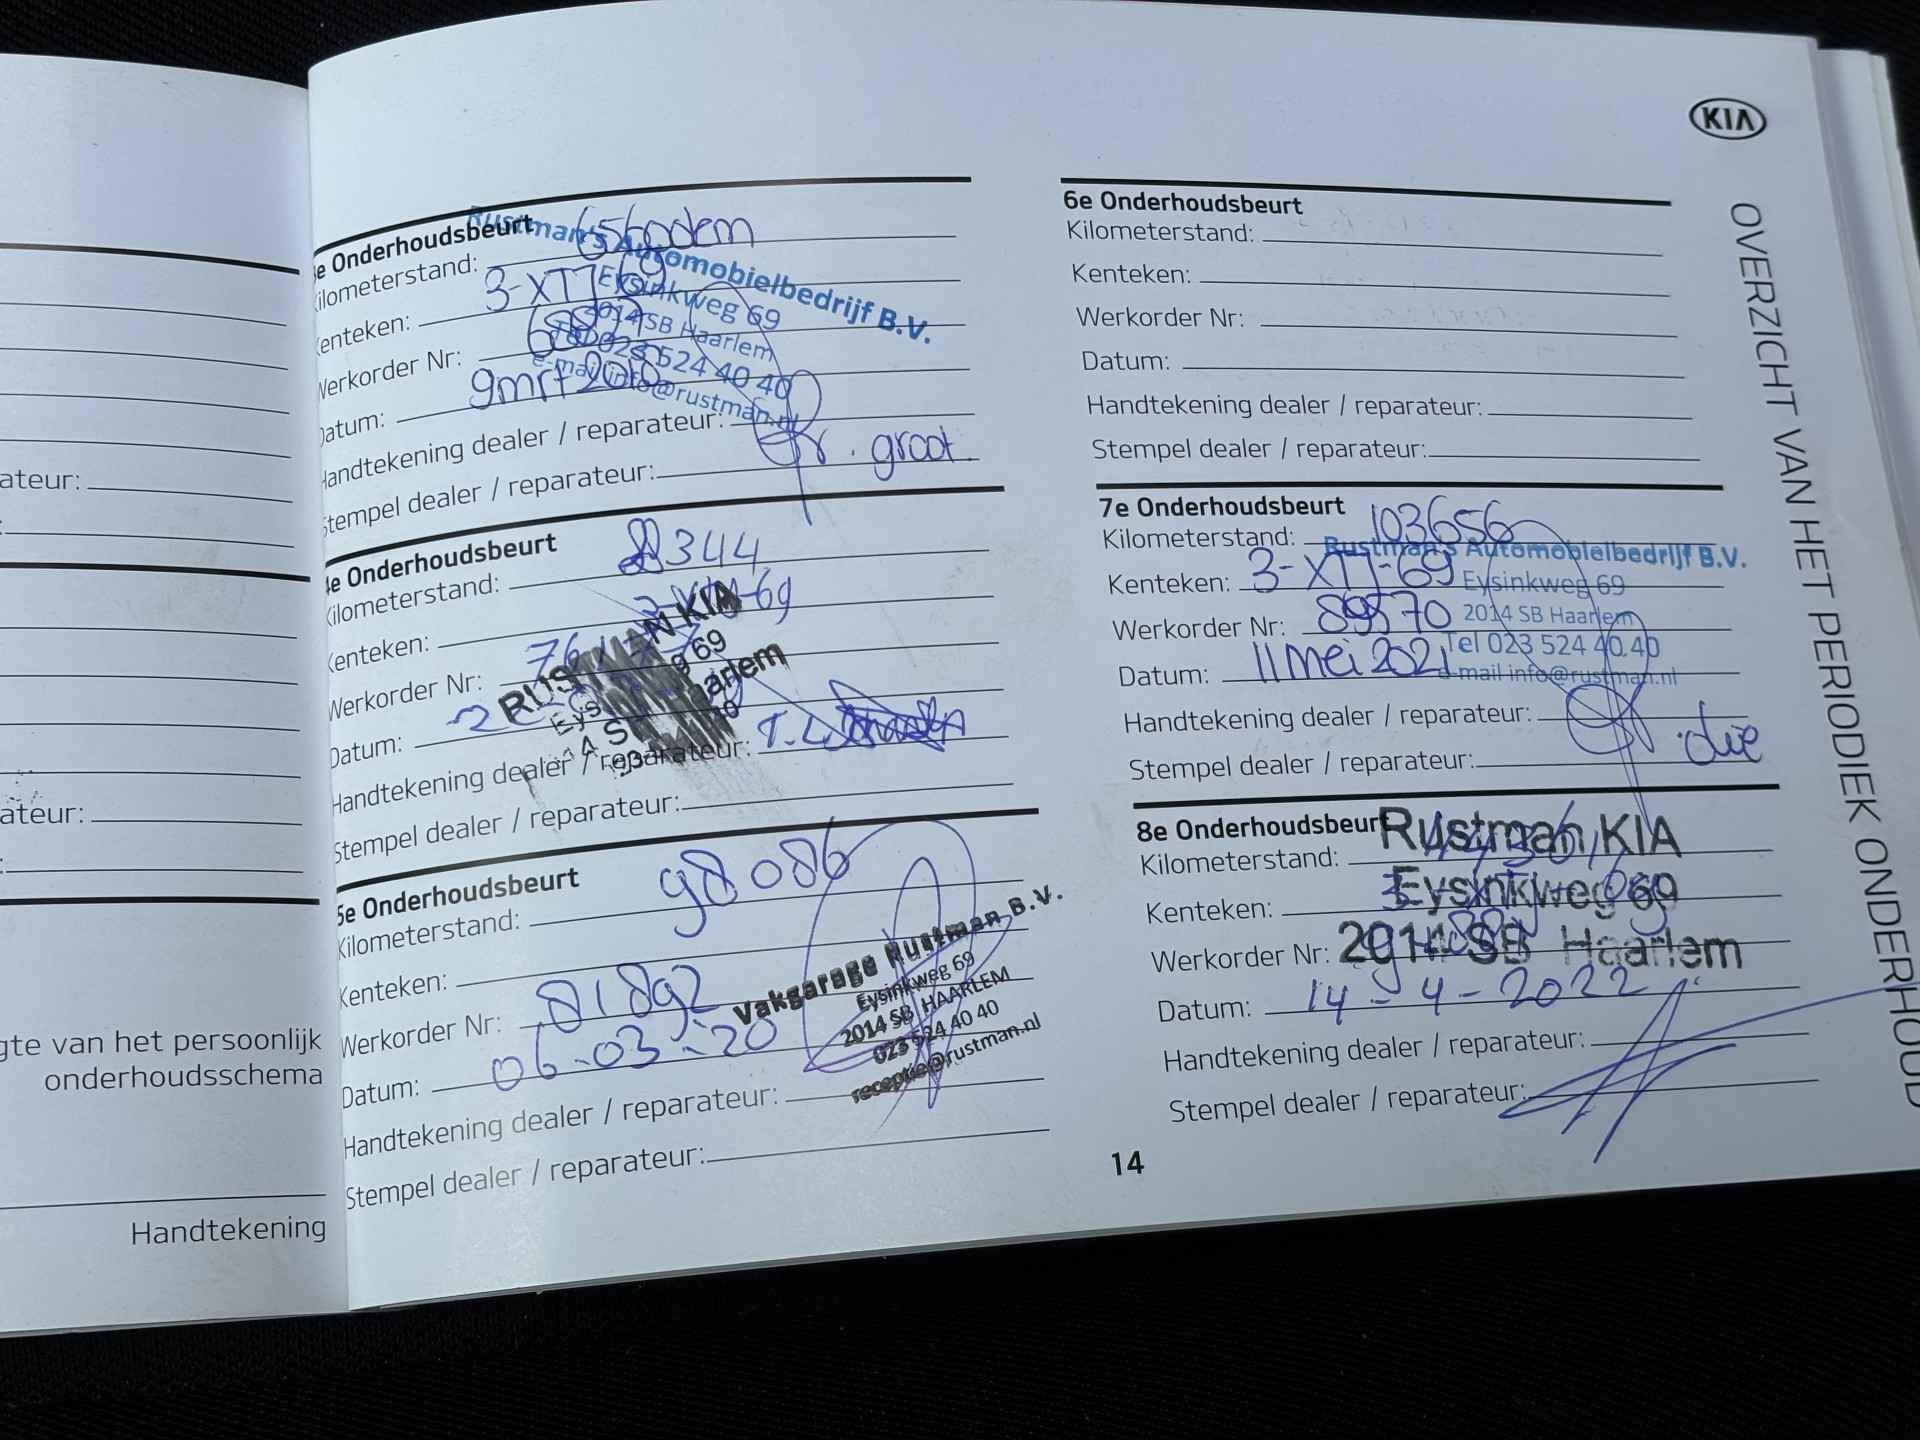 ateur:
ateur:
gte van het persoonlijk
onderhoudsschema
Handtekening
e Onderhoudsbeurt
Rustman's Automobielbedrijf B.V.
Kilometerstand:
Eysinkweg 69
Kenteken: 3-XTJ-69
2014 SB Haarlem
Werkorder Nr:
Tel 023 524 40 40
Datum: 9mrt
e-mail info@rustman.nl
Handtekening dealer / reparateur:
gr. groot
Stempel dealer / reparateur:
4e Onderhoudsbeurt
Kilometerstand: 344
Kenteken: -69
RUSTMAN KIA
Werkorder Nr:
69
Haarlem
Datum:
Handtekening dealer / reparateur:
Stempel dealer / reparateur:
5e Onderhoudsbeurt
Kilometerstand: 98086
Kenteken:
Vakgarage Rustman B.V.
Werkorder Nr: 81892
Eysinkweg 69
2014 SB HAARLEM
Datum: 06-03-'20
023 524 40 40
receptie@rustman.nl
Handtekening dealer / reparateur:
Stempel dealer / reparateur:
KIA
OVERZICHT VAN HET PERIODIEK ONDERHOUD
6e Onderhoudsbeurt
Kilometerstand:
Kenteken:
Werkorder Nr:
Datum:
Handtekening dealer / reparateur:
Stempel dealer / reparateur:
7e Onderhoudsbeurt
Kilometerstand: 103656
Rustman's Automobielbedrijf B.V.
Kenteken: 3-XTJ-69
Eysinkweg 69
Werkorder Nr: 89570
2014 SB Haarlem
Tel 023 524 40 40
Datum: 11 mei 2021
e-mail info@rustman.nl
Handtekening dealer / reparateur:
Stempel dealer / reparateur:
8e Onderhoudsbeurt
Rustman KIA
Kilometerstand:
Eysinkweg 69
Kenteken:
2014 SB Haarlem
Werkorder Nr:
Datum: 14-4-2022
Handtekening dealer / reparateur:
Stempel dealer / reparateur:
14